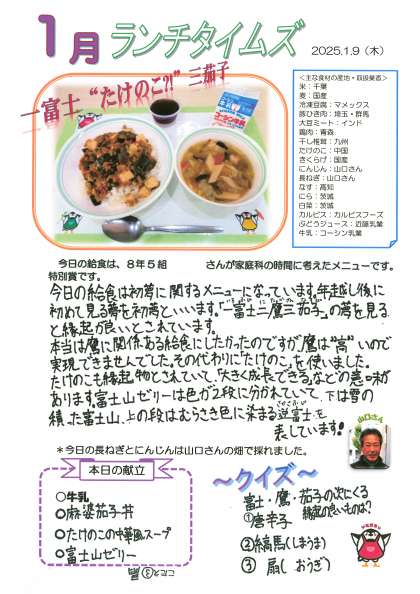 1月 ランチタイムズ
2025.1.9（木）
一富士 “たけのこ?!” 三茄子
＜主な食材の産地・取扱業者＞
米：千葉
麦：国産
冷凍豆腐：マメックス
豚ひき肉：埼玉・群馬
大豆ミート：インド
鶏肉：青森
干し椎茸：九州
たけのこ：中国
きくらげ：国産
にんじん：山口さん
長ねぎ：山口さん
なす：高知
にら：茨城
白菜：茨城
カルピス：カルピスフーズ
ぶどうジュース：近藤乳業
牛乳：コーシン乳業
今日の給食は、８年５組 さんが家庭科の時間に考えたメニューです。
特別賞です。
今日の給食は初夢に関するメニューになっています。年越し後に
初めて見る夢を初夢といいます。「一富士二鷹三茄子」の夢を見る
と縁起が良いとされています。
本当は鷹に関係ある給食にしたかったのですが鷹は“高”いので
実現できませんでした。その代わりに「たけのこ」を使いました。
たけのこも縁起物とされていて、「大きく成長できる」などの意味が
あります。富士山ゼリーは色が2段に分かれていて、下は雪の
積った富士山、上の段はむらさき色に染まる逆富士を
表しています!
山口さん
＊今日の長ねぎとにんじんは山口さんの畑で採れました。
本日の献立
○牛乳
○麻婆茄子丼
○たけのこの中華風スープ
○富士山ゼリー
～クイズ～
富士・鷹・茄子の次にくる
縁起の良いものは?
①唐辛子
②縞馬（しまうま）
③ 扇（おうぎ）